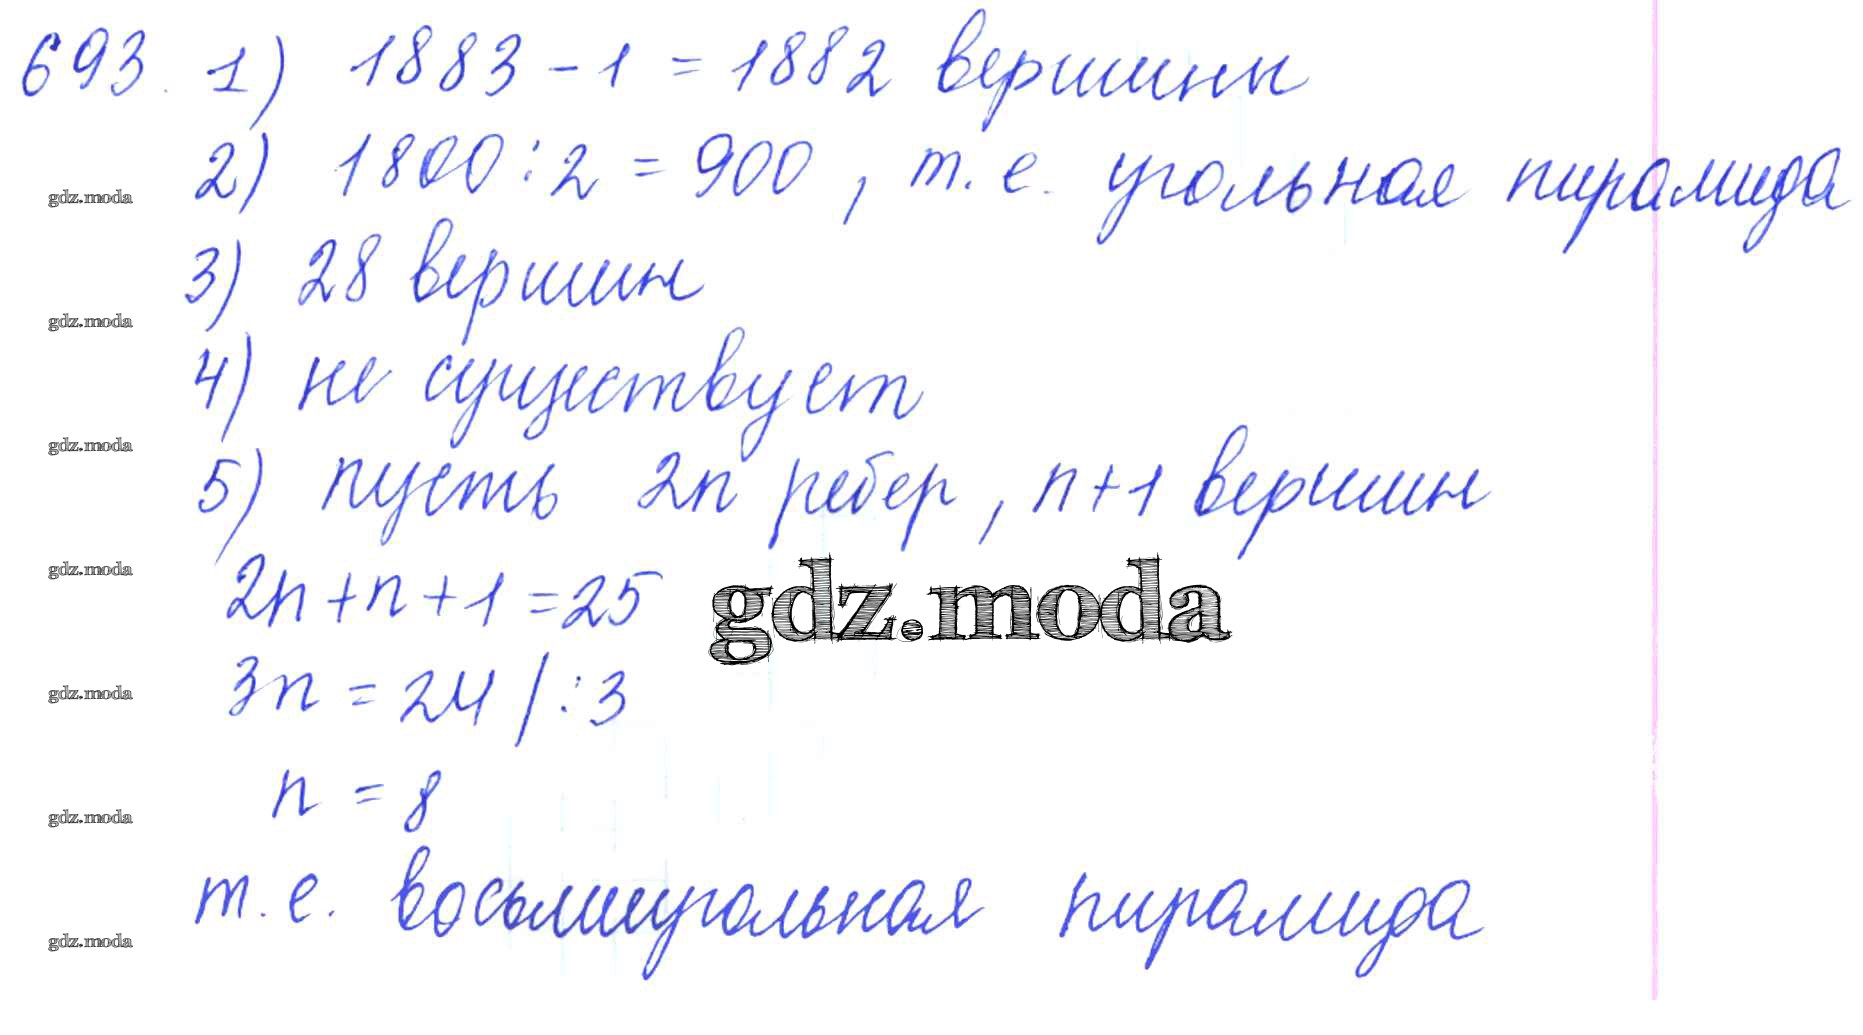 693. 1) 1883 - 1 = 1882 вершины
2) 1800 : 2 = 900, т.е. угольная пирамида
gdz.moda
3) 28 вершин
gdz.moda
4) не существует
gdz.moda
5) пусть 2n ребер, n+1 вершин
gdz.moda
2n + n + 1 = 25
gdz.moda
3n = 24 | :3
gdz.moda
n = 8
gdz.moda
т.е. восьмиугольная пирамида
gdz.moda